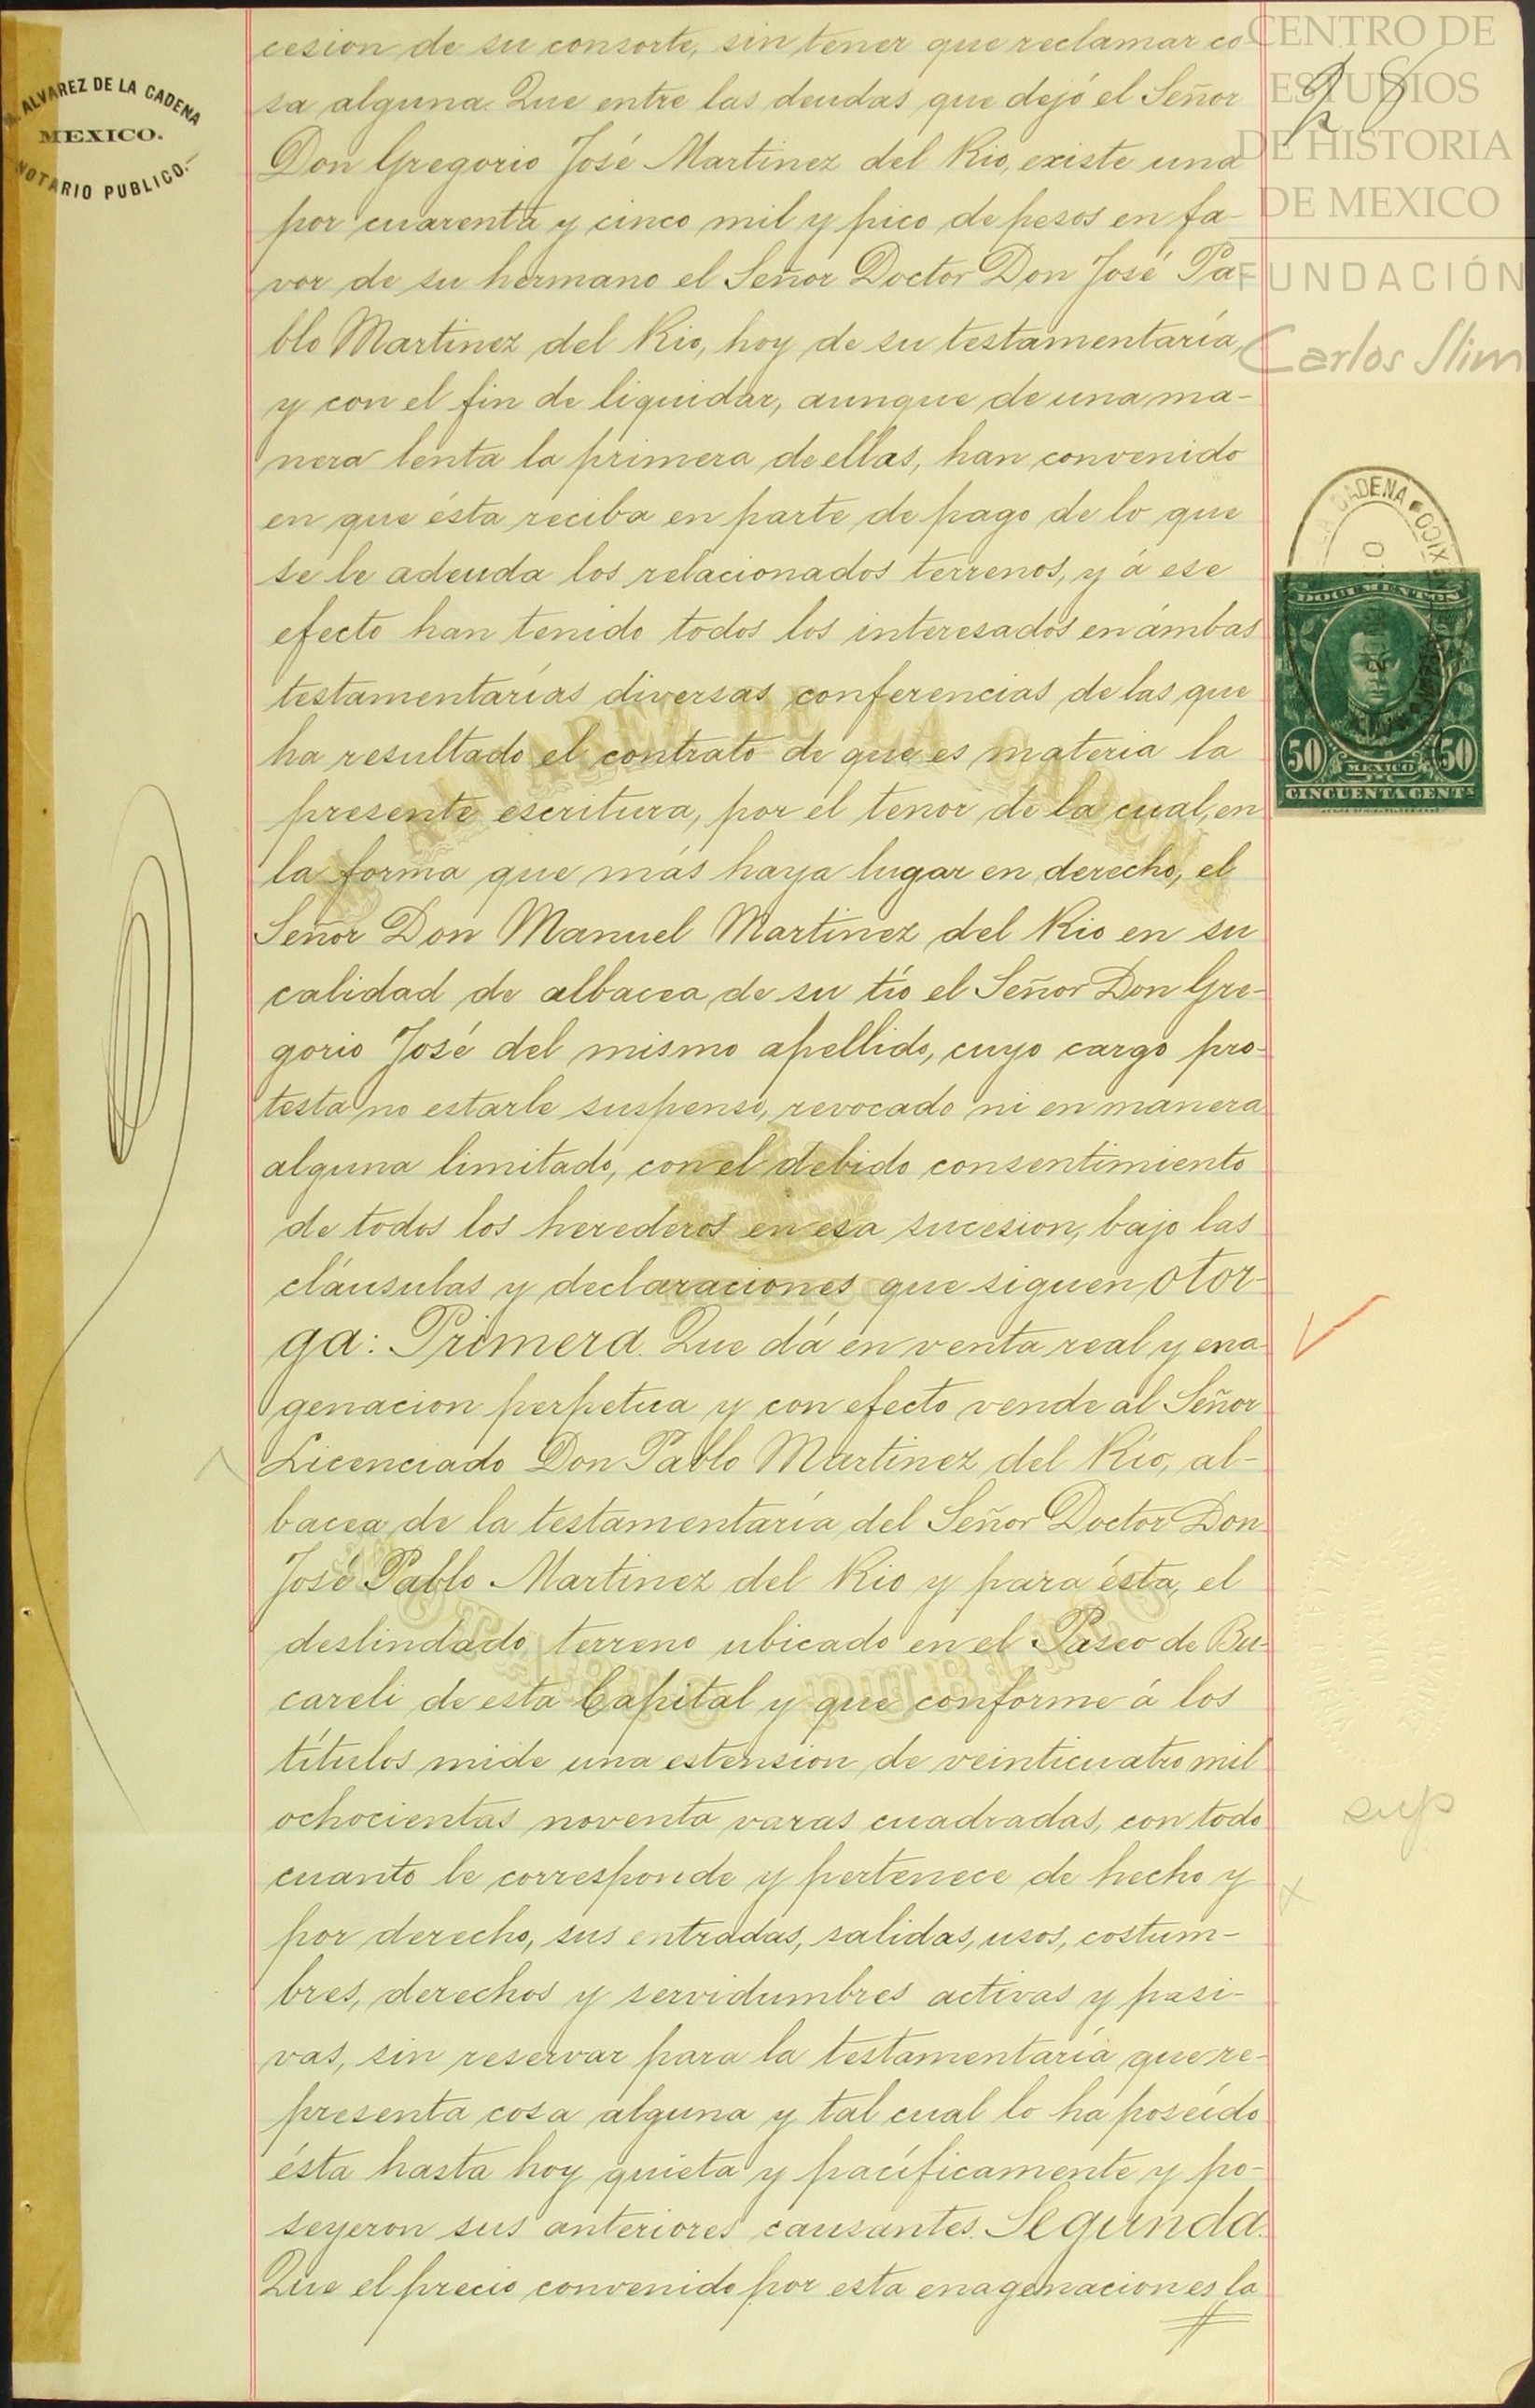 ALVAREZ DE LA CADENA
MEXICO.
NOTARIO PUBLICO.
CENTRO DE
ESTUDIOS
DE HISTORIA
DE MEXICO
FUNDACIÓN
Carlos Slim
cesion de su consorte, sin tener que reclamar co-
sa alguna. Que entre las deudas que dejó el Señor
Don Gregorio José Martinez del Rio, existe una
por cuarenta y cinco mil y pico de pesos en fa-
vor de su hermano el Señor Doctor Don José Pa-
blo Martinez del Rio, hoy de su testamentaría,
y con el fin de liquidar, aunque de una ma-
nera lenta la primera de ellas, han convenido
en que ésta reciba en parte de pago de lo que
se le adeuda los relacionados terrenos, y á ese
efecto han tenido todos los interesados en ámbas
testamentarías diversas conferencias de las que
ha resultado el contrato de que es materia la
presente escritura, por el tenor de la cual, en
la forma que más haya lugar en derecho, el
Señor Don Manuel Martinez del Rio en su
calidad de albacea de su tío el Señor Don Gre-
gorio José del mismo apellido, cuyo cargo pro-
testa no estarle suspenso, revocado ni en manera
alguna limitado, con el debido consentimiento
de todos los herederos en esa sucesion, bajo las
cláusulas y declaraciones que siguen otor-
ga: Primera. Que dá en venta real y ena-
genacion perpetua y con efecto vende al Señor
Licenciado Don Pablo Martinez del Rio, al-
bacea de la testamentaría del Señor Doctor Don
José Pablo Martinez del Rio y para ésta, el
deslindado terreno ubicado en el Paseo de Bu-
careli de esta Capital y que conforme á los
títulos mide una estension de veinticuatro mil
ochocientas noventa varas cuadradas, con todo
cuanto le corresponde y pertenece de hecho y
por derecho, sus entradas, salidas, usos, costum-
bres, derechos y servidumbres activas y pasi-
vas, sin reservar para la testamentaría que re-
presenta cosa alguna y tal cual lo ha poseído
ésta hasta hoy quieta y pacíficamente y po-
seyeron sus anteriores causantes. Segunda.
Que el precio convenido por esta enagenacion es la
CADENA
DOCUMENTOS
50 MEXICO 50
CINCUENTA CENTS
sup